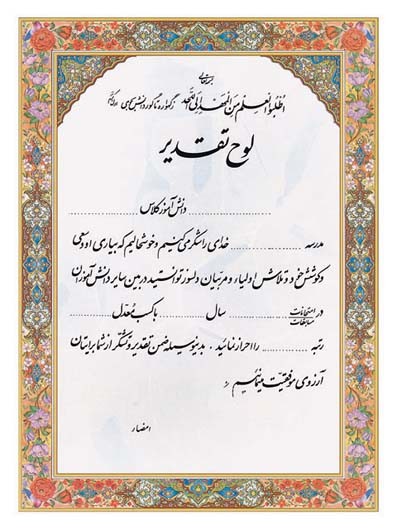 بسمه تعالی
اُطْلُبُوا الْعِلْمَ مِنَ الْمَهْدِ اِلَی اللَّحْدِ ز گهواره تا گور دانش بجوی
لوح تقدیر
.................... دانش آموز کلاس ....................
مدرسه .......... خدای را شکر می کنیم و خوشحالیم که بیاری او و سعی
و کوشش خود و تلاش اولیاء و مربیان دلسوز توانستید در بین سایر دانش آموزان
در امتحانات مسابقات .......... سال .......... با کسب معدل ..........
رتبه .......... را احراز نمائید . بدینوسیله ضمن تقدیر و تشکر از شما برایتان
آرزوی موفقیت مینمائیم
امضاء